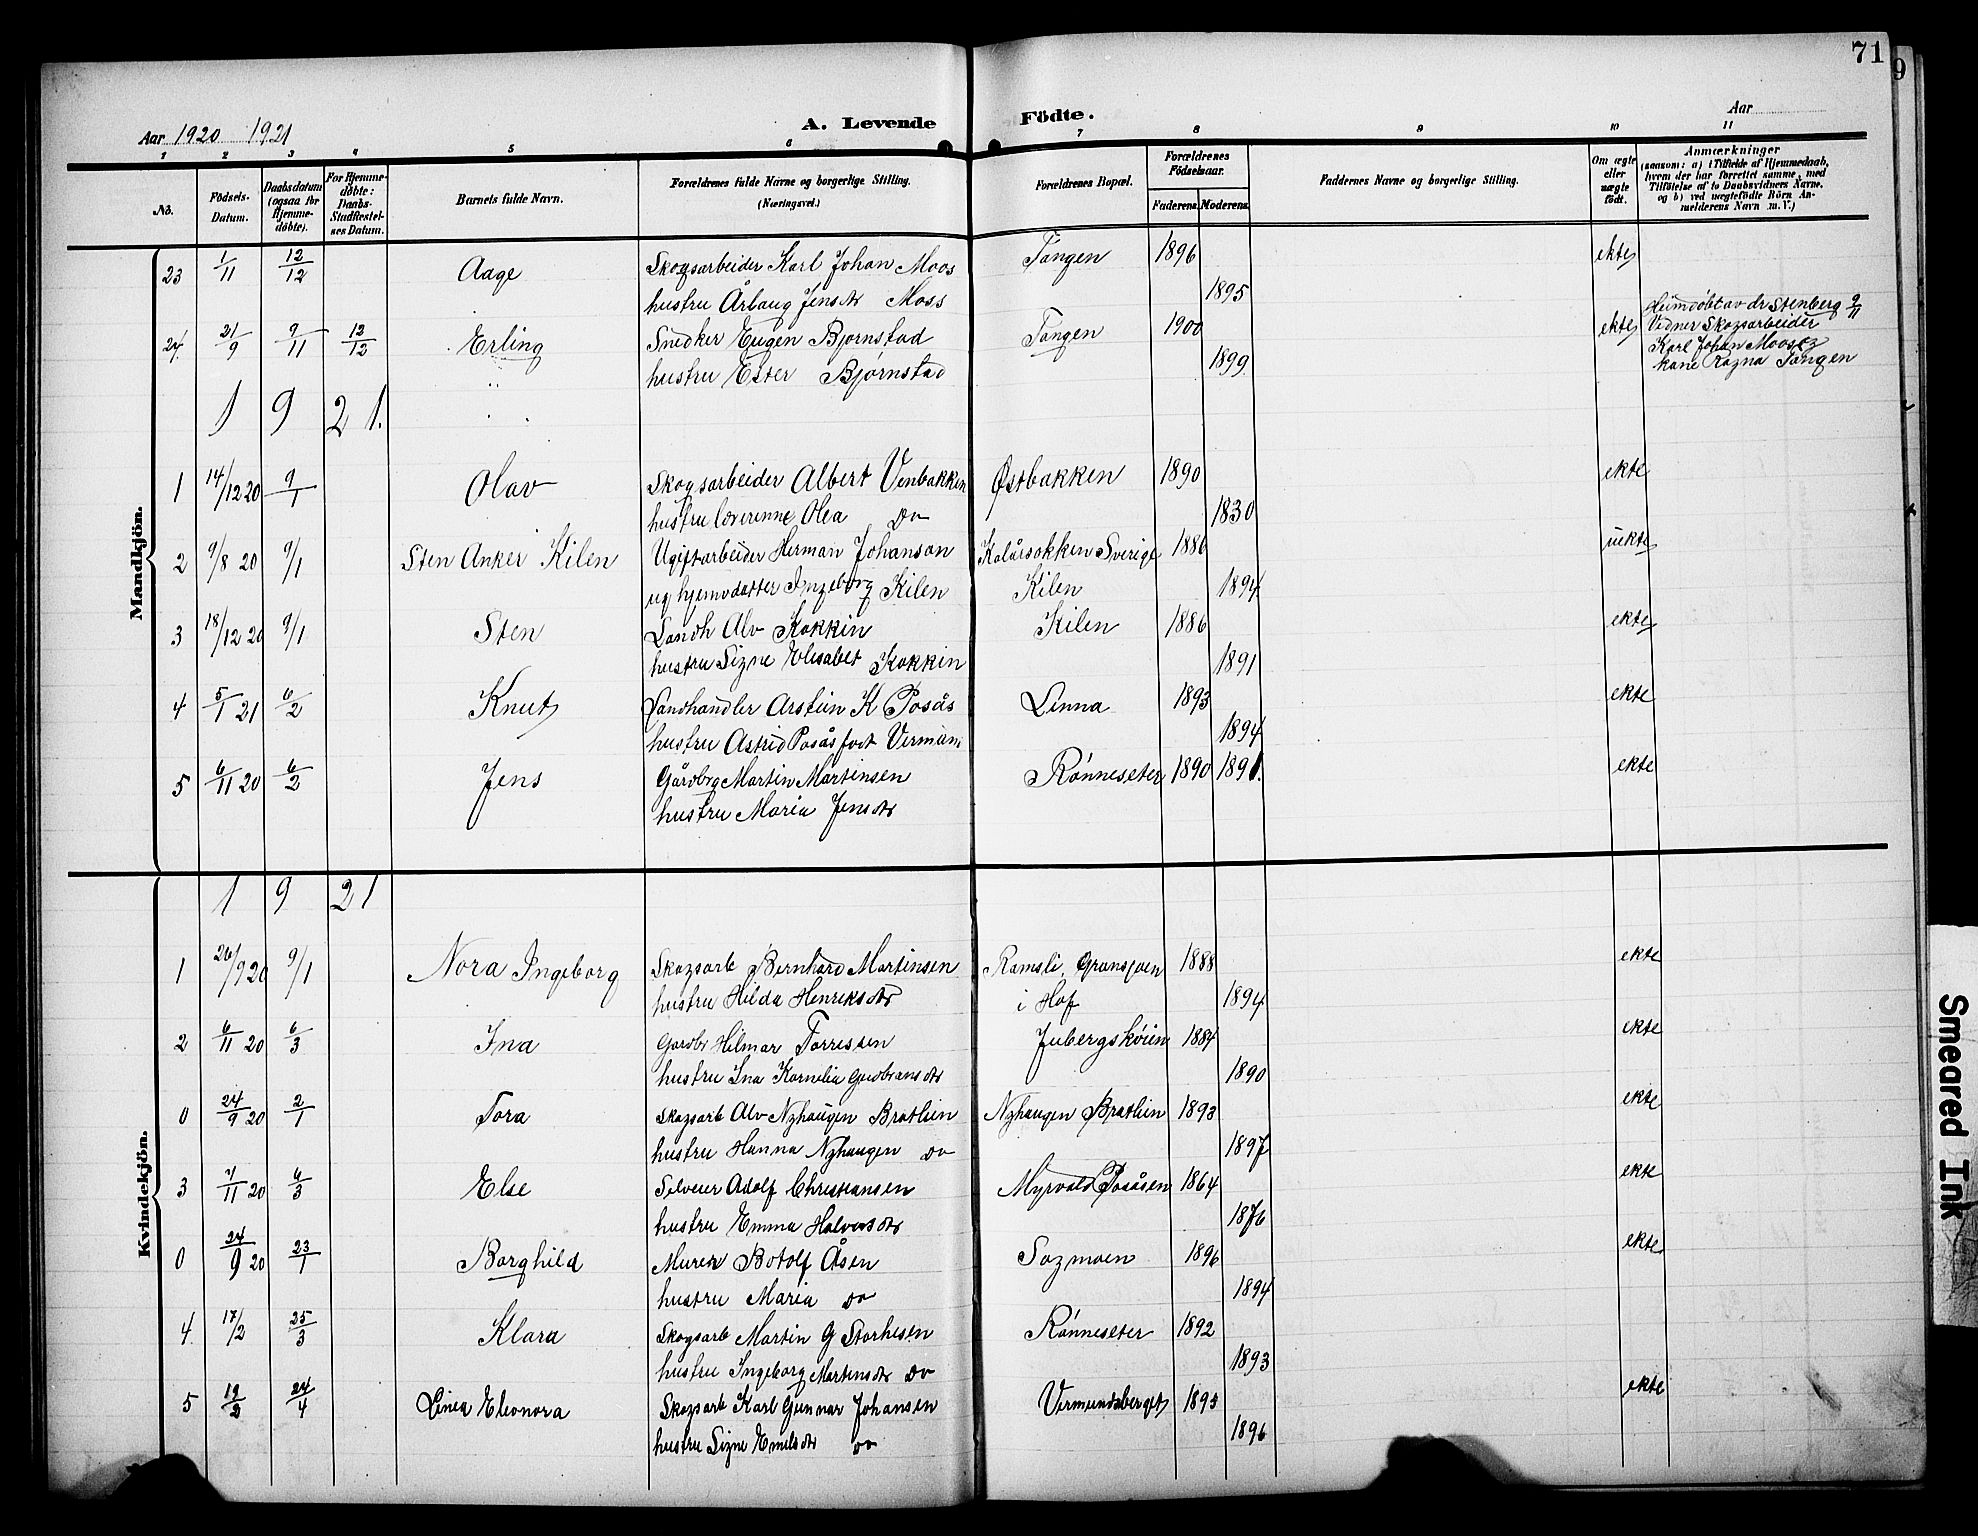 71
9
Aar 1920 1921
A. Levende Födte.
Aar
1 2 3 4 5 6 7 8 9 10 11
No.
Födsels-Datum.
Daabsdatum (ogsaa for Hjemmedöbte).
For Hjemmedöbte: Daabs-Stadfæstelses Datum.
Barnets fulde Navn.
Forældrenes fulde Navne og borgerlige Stilling. (Næringsvei.)
Forældrenes Bopæl.
Forældrenes Födselsaar.
Faderens. Moderens.
Faddernes Navne og borgerlige Stilling.
Om ægte eller uægte födt.
Anmærkninger
(saasom: a) i Tilfælde af Hjemmedaab, hvem der har forrettet samme, med Tilföielse af to Daabsvidners Navne, og b) ved uægtefödte Börn Anmelderens Navn m. V.)
Mandkjön.
23 1/11 12/12 Aage Skogsarbeider Karl Johan Moos Tangen 1896 ekte
hustru Årbaug Jensdtr Moss 1895
24 21/9 9/11 12/12 Erling Snedker Eugen Bjørnstad Tangen 1900 ekte
hustru Ester Bjørnstad 1899
Heimdøbt av dr Stenberg 9/11
Vidner Skogsarbeider
Karl Johan Moos
kane Ragna Tangen
1 9 21.
1 14/12 20 9/1 Olav Skogsarbeider Albert Venbakken Østbakken 1890 ekte
hustru lærerinne Olea Do 1830
2 9/8 20 9/1 Sten Anker Kilen Ugiftarbeider Herman Johanson Kalårsokken Sverige 1886 uekte
ug hjemvdatter Ingeborg Kilen Kilen 1894
3 18/12 20 9/1 Sten Landh Alv Kokkin Kilen 1886 ekte
hustru Signe Elisabet Kokkin 1891
4 5/1 21 6/2 Knut Landhandler Arstein K Posås Linna 1893 ekte
hustru Astrid Posås født 1894
5 6/11 20 6/2 Jens Gårdbr Martin Martinsen Rønneseter 1890 1891. ekte
hustru Maria Jensdtr
Kvindekjön.
1 9 21
1 26/9 20 9/1 Nora Ingeborg Skogsarb Bernhard Martinsen Ramsli, Gransjøen 1888 ekte
hustru Hilda Henriksdtr i Hof 1894
2 6/11 20 6/3 Ina Gardbr Hilmar Torressen Jubergskøien 1884 ekte
hustru Ina Kornelia Gudbransdtr 1890
0 24/9 20 2/1 Tora Skogsarb Alv Nyhaugen Bratlien Nyhaugen Bratlien 1893 ekte
hustru Hanna Nyhaugen do 1897
3 7/11 20 6/3 Else Selveier Adolf Christiansen Myrvold Posåsen 1864 ekte
hustru Emma Halvorsdtr 1876
0 24/9 20 23/1 Borghild Murer Botolf Åsen Sagmoen 1896 ekte
hustru Maria do 1894
4. 17/2 25/3 Klara Skogsarb Martin G Storhesen Rønneseter 1892
hustru Ingeborg Martinsdtr do 1893
5 12/2 24/4 Linea Eleonora Skogsarb Karl Gunnar Johansen Vermundsberget 1895 ekte
hustru Signe Emilsdtr do 1896
Smeared Ink